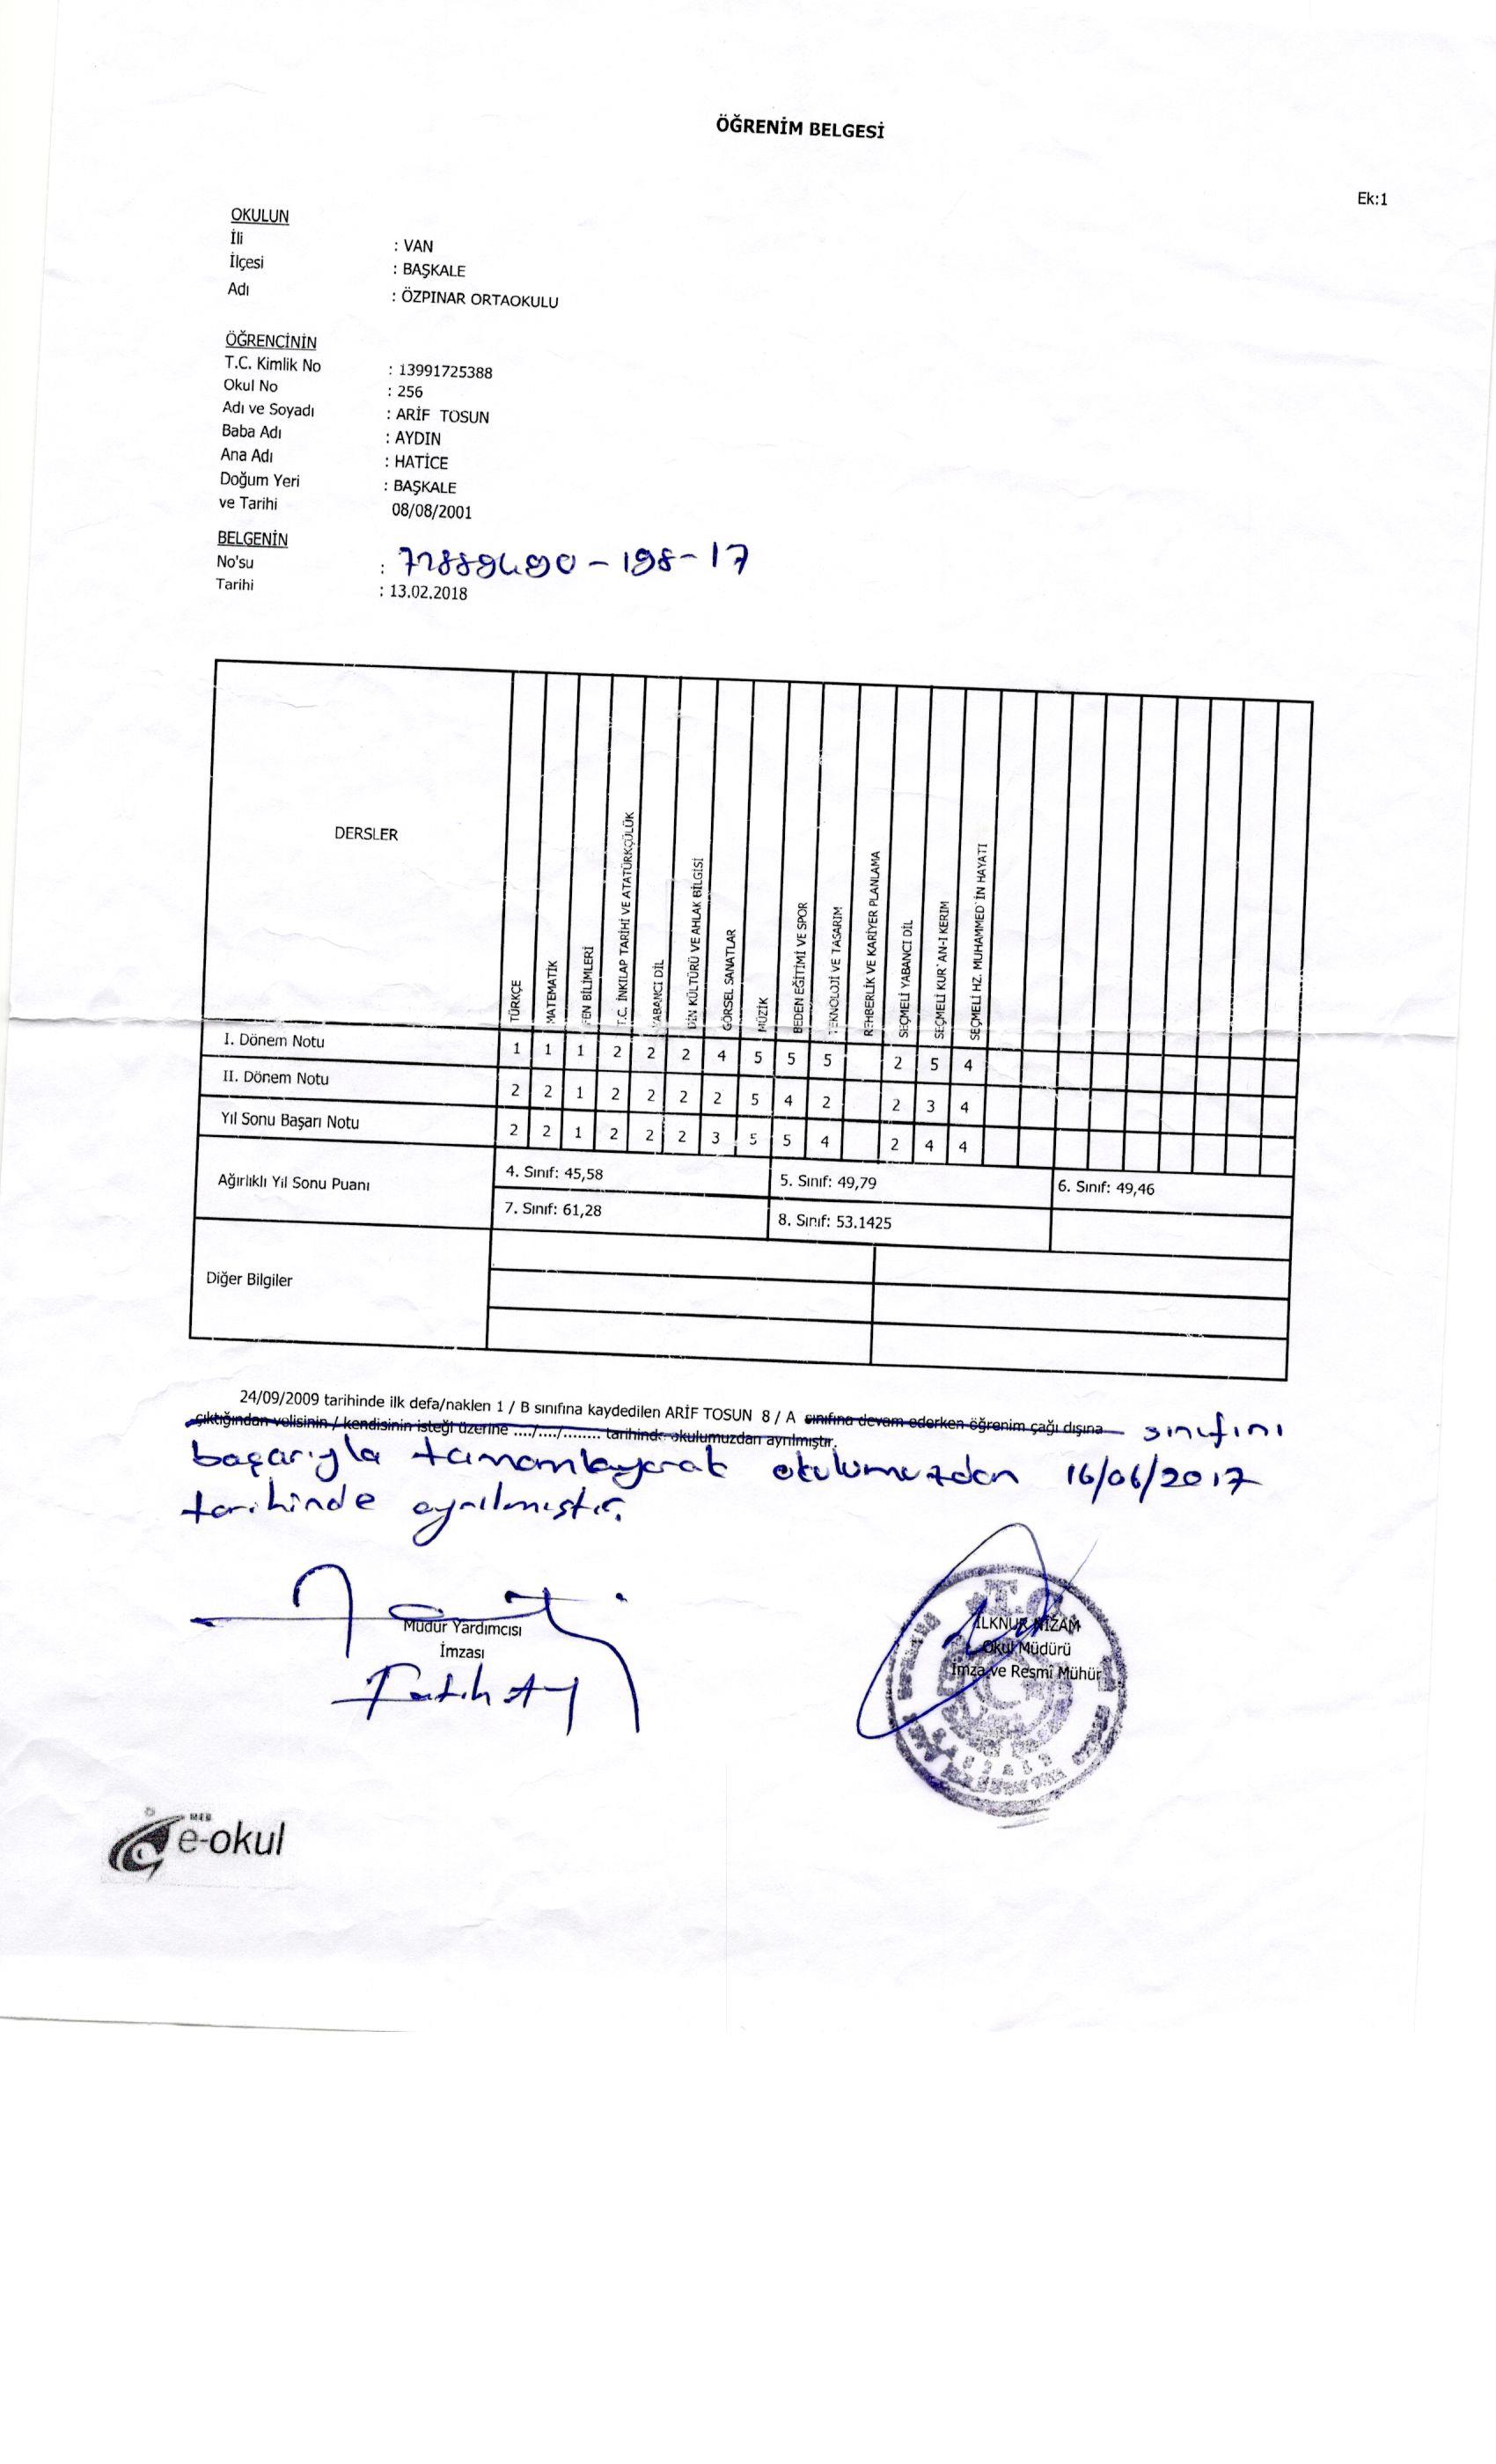 ÖĞRENİM BELGESİ
Ek:1
OKULUN
İli : VAN
İlçesi : BAŞKALE
Adı : ÖZPINAR ORTAOKULU
ÖĞRENCİNİN
T.C. Kimlik No : 13991725388
Okul No : 256
Adı ve Soyadı : ARİF TOSUN
Baba Adı : AYDIN
Ana Adı : HATİCE
Doğum Yeri : BAŞKALE
ve Tarihi 08/08/2001
BELGENİN
No'su : 72889490-198-17
Tarihi : 13.02.2018
DERSLER
TÜRKÇE
MATEMATİK
FEN BİLİMLERİ
T.C. İNKILAP TARİHİ VE ATATÜRKÇÜLÜK
YABANCI DİL
DİN KÜLTÜRÜ VE AHLAK BİLGİSİ
GÖRSEL SANATLAR
MÜZİK
BEDEN EĞİTİMİ VE SPOR
TEKNOLOJİ VE TASARIM
REHBERLİK VE KARİYER PLANLAMA
SEÇMELİ YABANCI DİL
SEÇMELİ KUR`AN-I KERIM
SEÇMELİ HZ. MUHAMMED`İN HAYATI
I. Dönem Notu 1 1 1 2 2 2 4 5 5 5 2 5 4
II. Dönem Notu 2 2 1 2 2 2 2 5 4 2 2 3 4
Yıl Sonu Başarı Notu 2 2 1 2 2 2 3 5 5 4 2 4 4
Ağırlıklı Yıl Sonu Puanı 4. Sınıf: 45,58 5. Sınıf: 49,79 6. Sınıf: 49,46
7. Sınıf: 61,28 8. Sınıf: 53.1425
Diğer Bilgiler
24/09/2009 tarihinde ilk defa/naklen 1 / B sınıfına kaydedilen ARİF TOSUN 8 / A sınıfına devam ederken öğrenim çağı dışına sınıfını
çıktığından velisinin / kendisinin isteği üzerine ..../..../......... tarihinde okulumuzdan ayrılmıştır.
başarıyla tamamlayarak okulumuzdan 16/06/2017
tarihinde ayrılmıştır.
Müdür Yardımcısı
İmzası
Fatih AY
İLKNUR NİZAM
Okul Müdürü
İmza ve Resmî Mühür
T.C.
MEB
e-okul